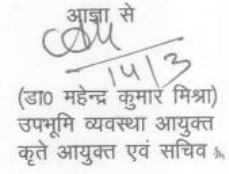 आज्ञा से
14/3
(डा० महेन्द्र कुमार मिश्रा)
उपभूमि व्यवस्था आयुक्त
कृते आयुक्त एवं सचिव